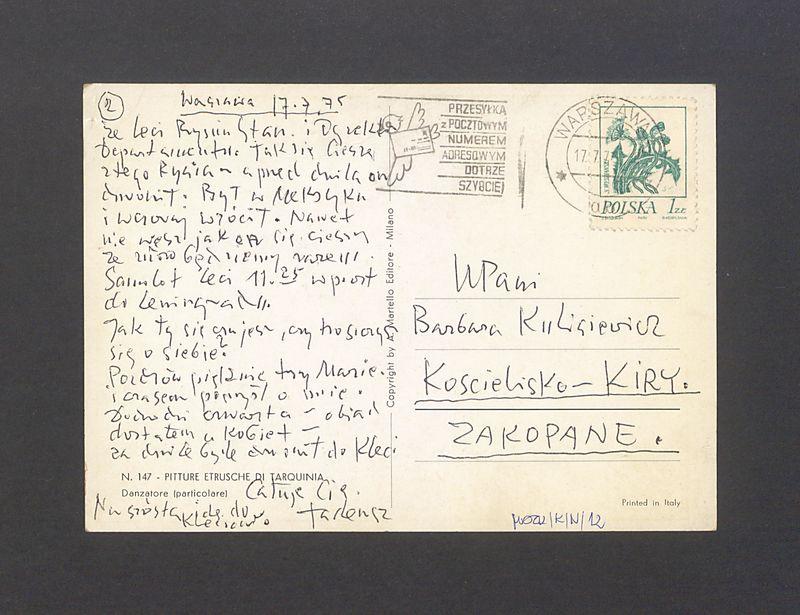 2
Warszawa 17.7.75
że leci Rysiu Stan. i Dyrektor
Departamentu. Tak się cieszę
z tego Rysia – a przed chwilą on
dzwonił. Był w Meksyku
i wczoraj wrócił. Nawet
nie wiesz jak się cieszy
że znów będziemy razem.
Samolot leci 11.25 wprost
do Leningradu.
Jak ty się czujesz, czy troszczysz
się o siebie?
Pozdrów pięknie trzy Marie.
i czasem pomyśl o mnie.
Dochodzi czwarta – obiad
dostałem u kobiet –
za chwilę będę dzwonił do Kleci
N. 147 - PITTURE ETRUSCHE DI TARQUINIA
Danzatore (particolare)
Całuję Cię.
Na idę do
Tadeusz
Copyright by A. Martello Editore - Milano
PRZESYŁKA
z POCZTOWYM
NUMEREM
ADRESOWYM
DOTRZE
SZYBCIEJ
WARSZAWA
17.7.7
POLSKA 1ZŁ
WPani
Barbara Kulisiewicz
Kościelisko – KIRY.
ZAKOPANE.
Printed in Italy
MOZK/K/N/12